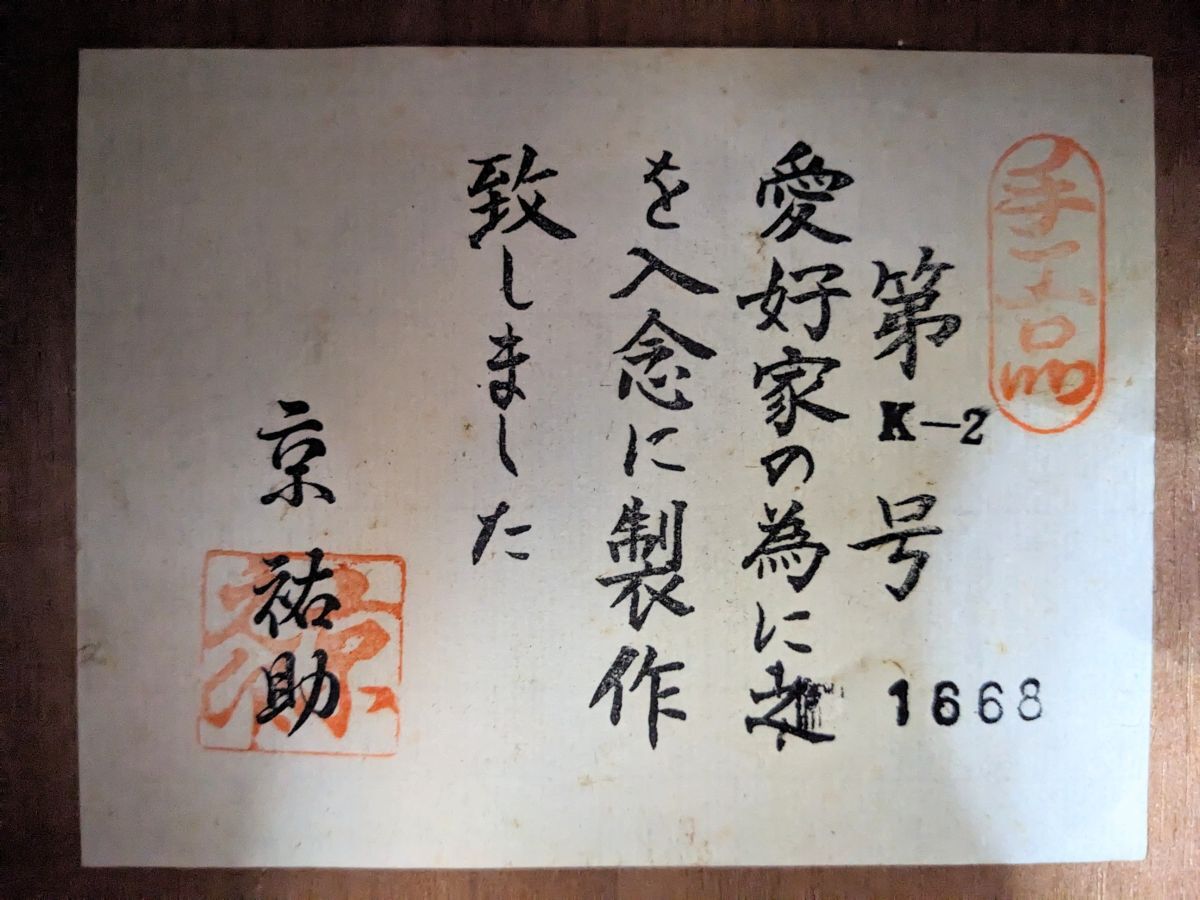 手工品
第K-2号
1668
愛好家の為に之
を入念に製作
致しました
京祐助